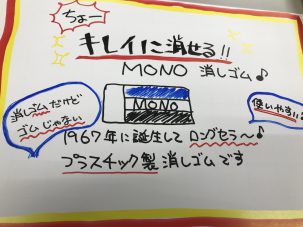 ちょー
キレイに消せる!!
MONO 消しゴム♪
消しゴムだけど
ゴムじゃない
MONO
使いやすい!!
1967年に誕生して ロングセラ〜♪
プラスチック製 消しゴムです